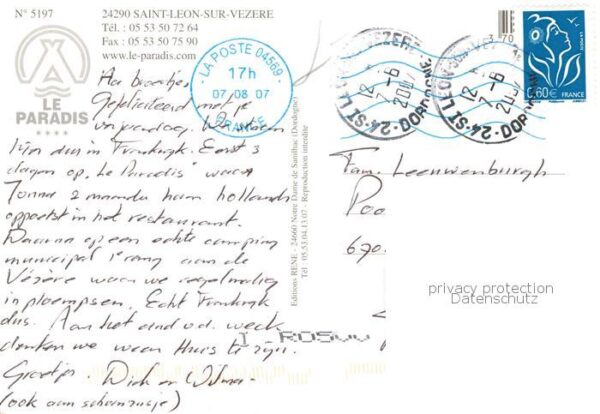 N° 5197
24290 SAINT-LEON-SUR-VEZERE
Tél. : 05 53 50 72 64
Fax : 05 53 50 75 90
www.le-paradis.com
LE
PARADIS
LA POSTE 04569
17h
07-08 07
FRANCE
3 70
24-ST LEON-SUR-VEZERE
12
7-8
2007
DORDOGNE
LA POSTE
0,60€ FRANCE
Gefeliciteerd met je
verjaardag. We
fijn dus in Frankrijk. Eerst 3
dagen op "Le Paradis" waar
2 maanden haar hollands
oppoetst in het restaurant.
Daarna op een echte camping
municipal aan de
Vézère waar we regelmatig
in ploempsen. Echt Frankrijk
dus. Aan het eind v.d. week
denken we weer thuis te zijn.
Groetjes Dick en Wilma
(ook aan schoonzusje)
Editions RENE - 24660 Notre Dame de Sanilhac (Dordogne)
Tél . 05.53.04.13.07 - Reproduction interdite
Fam. Leeuwenburgh
Poo
670
privacy protection
Datenschutz